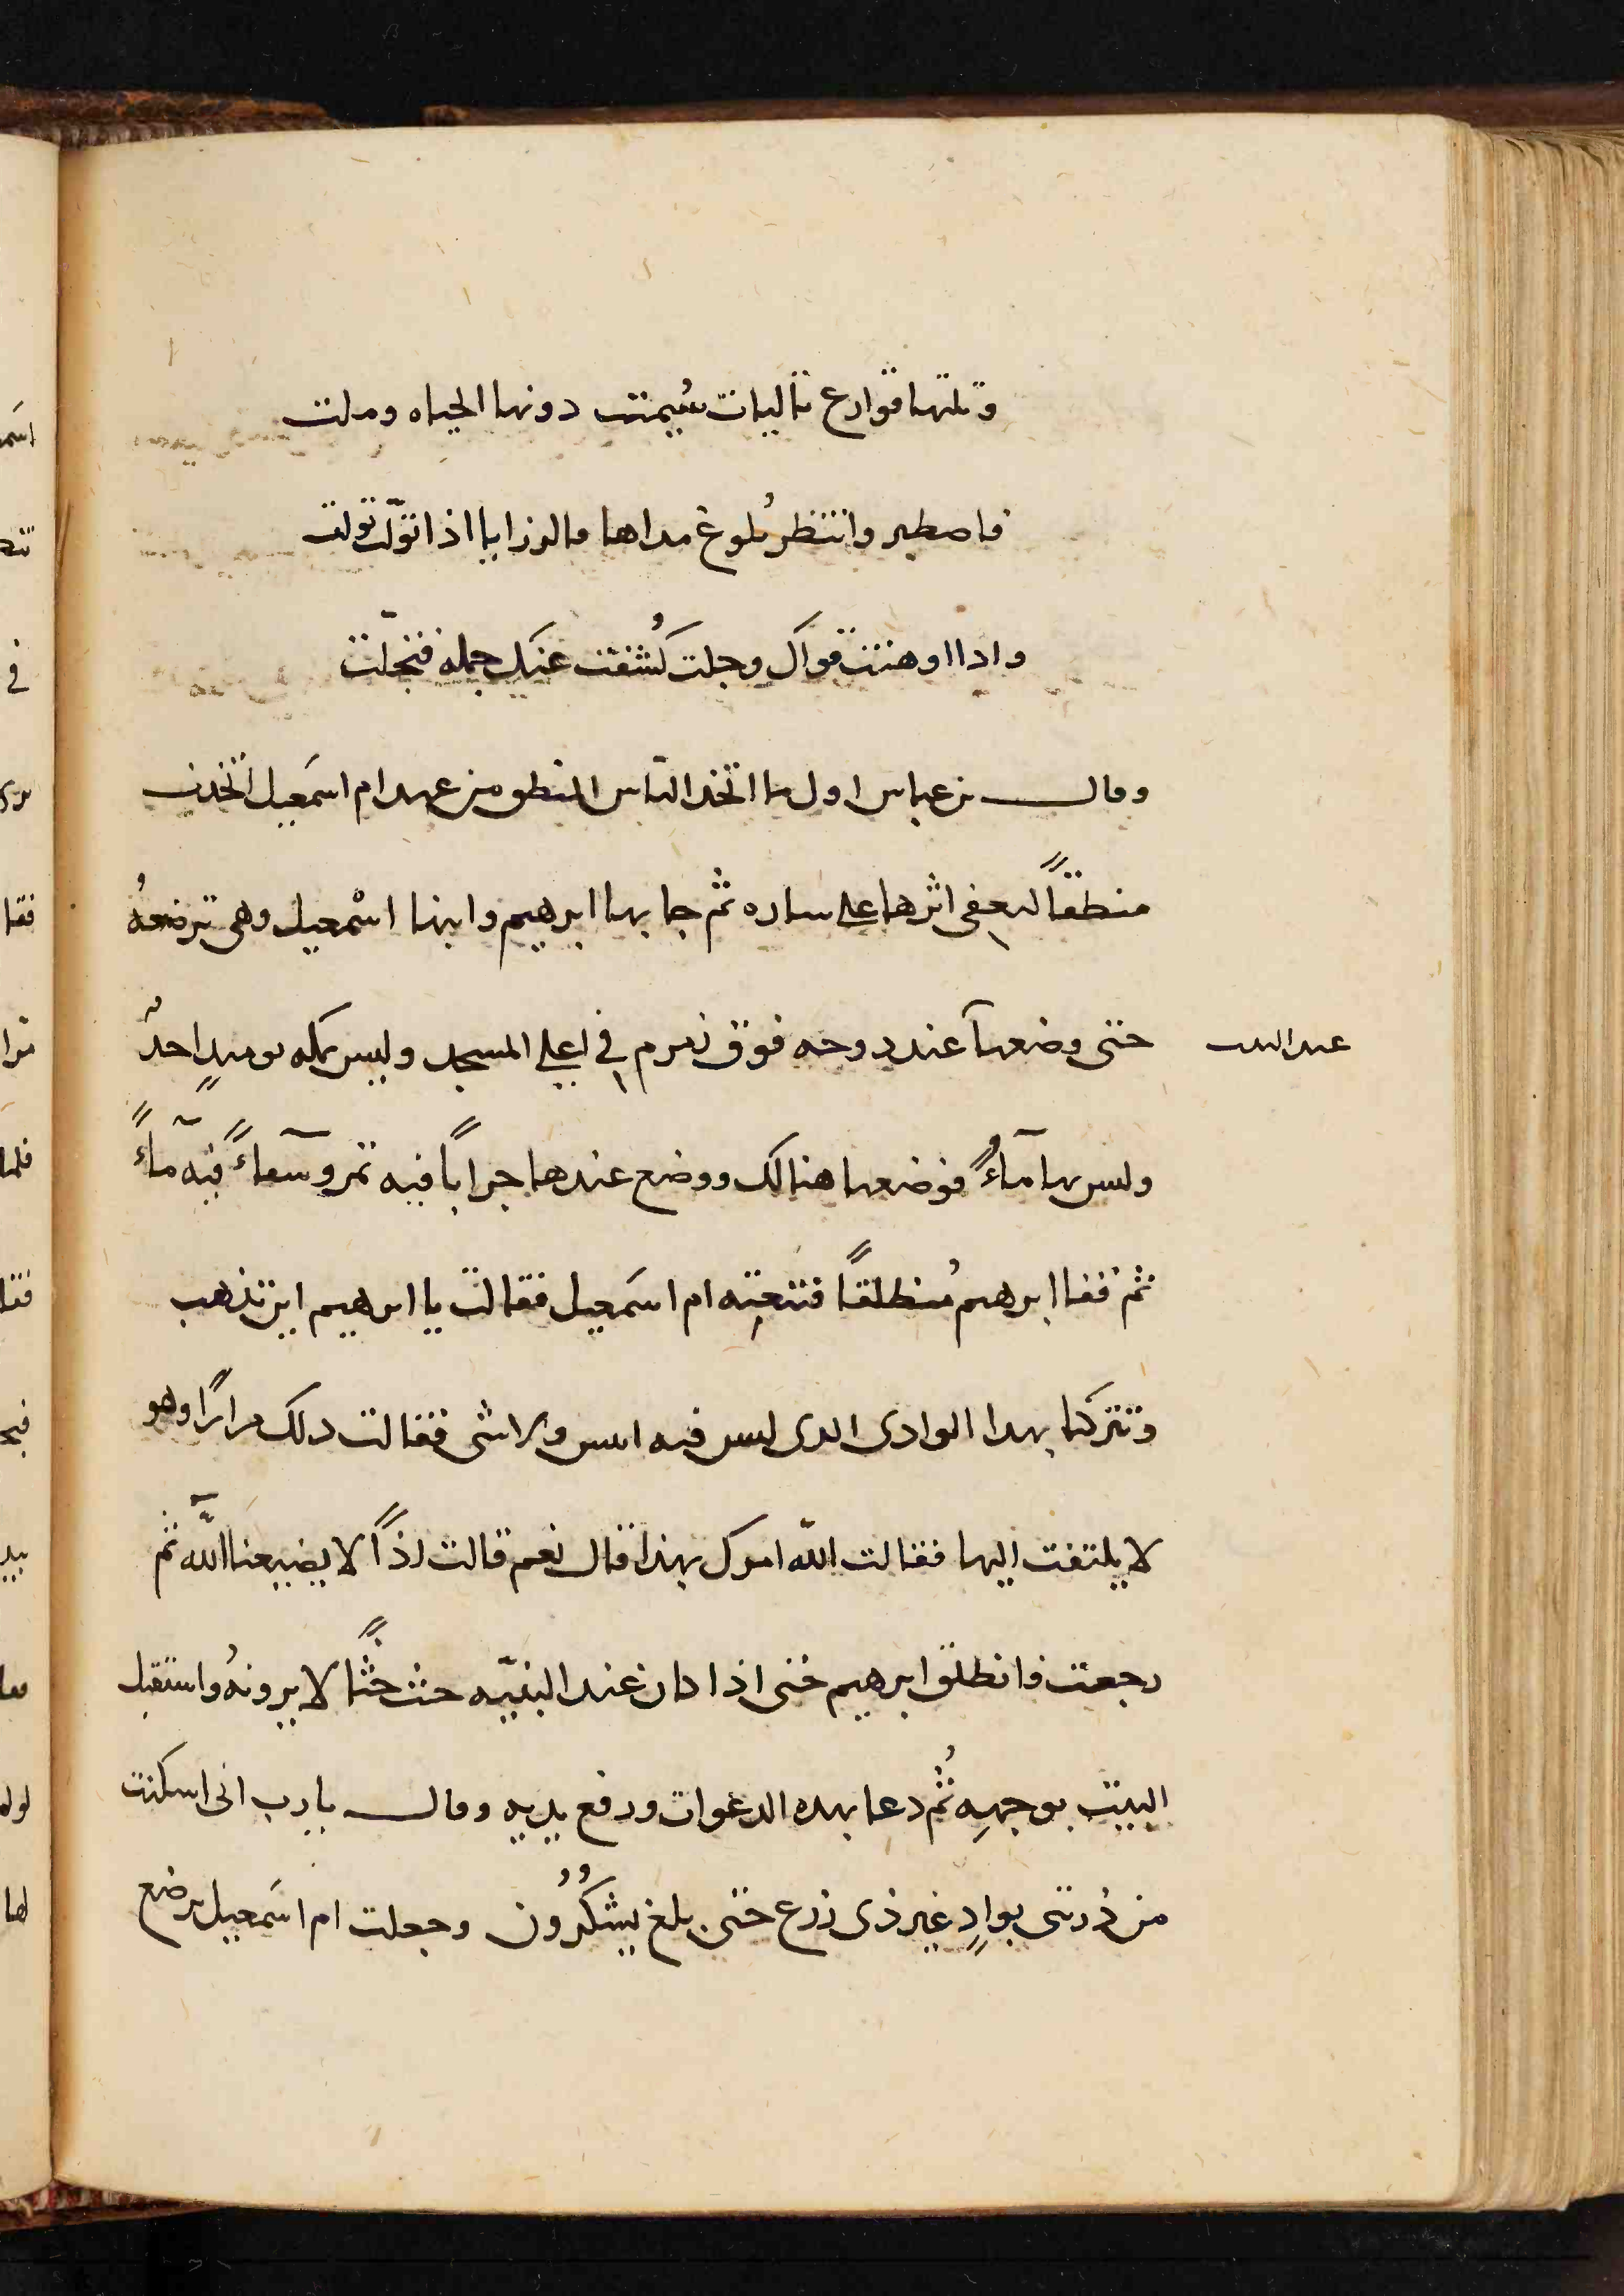 وتلتها قوارع تاليات سُيمت دونها الحياه وملت
فاصطبر وانتظر بُلوغ مداها فالرزايا اذا توّلت تولت
واذا اوهنت قواك وجلت كُشفت عنك جمله فتجلّت
وقال بن عباس اول ما اتخذ النّاس المنطق من عهد ام اسمَعيل اتخذت
منطقاً لتعفى اثرها على ساره ثم جا بها ابرهيم وابنها اسْمعيل وهى ترضعهُ
حتى وضعها عند دوحه فوق زمزم فى اعلى المسجد وليس بمكه يوميدٍ احدٌ
عبد البيت
وليس بها مآءٌ فوضعها هنالك ووضع عندها جراباً فيه تمر وسقآءً فيه مآءً
ثم قفا ابرهيم مُنطلقاً فتبعته ام اسمَعيل فقالت يا ابرهيم اين تذهب
وتتركنا بهدا الوادى الدى ليس فيه انيس ولا شى فقالت دلك مراراً وهو
لا يلتفت اليها فقالت اللّه امرك بهذا قال نعم قالت اذاً لا يضيعنا اللّه ثم
رجعت فانطلق ابرهيم حتى اذا كان عند الثنيّه حيث لا يرونهُ واستقبل
البيت بوجهِه ثُم دعا بهده الدعوات ورفع يديه وقال يا رب انى اسكنت
من ذُريتى بوادٍ غير ذى زرع حتى بلغ يشكُرُون وجعلت ام اسمَعيل ترضع